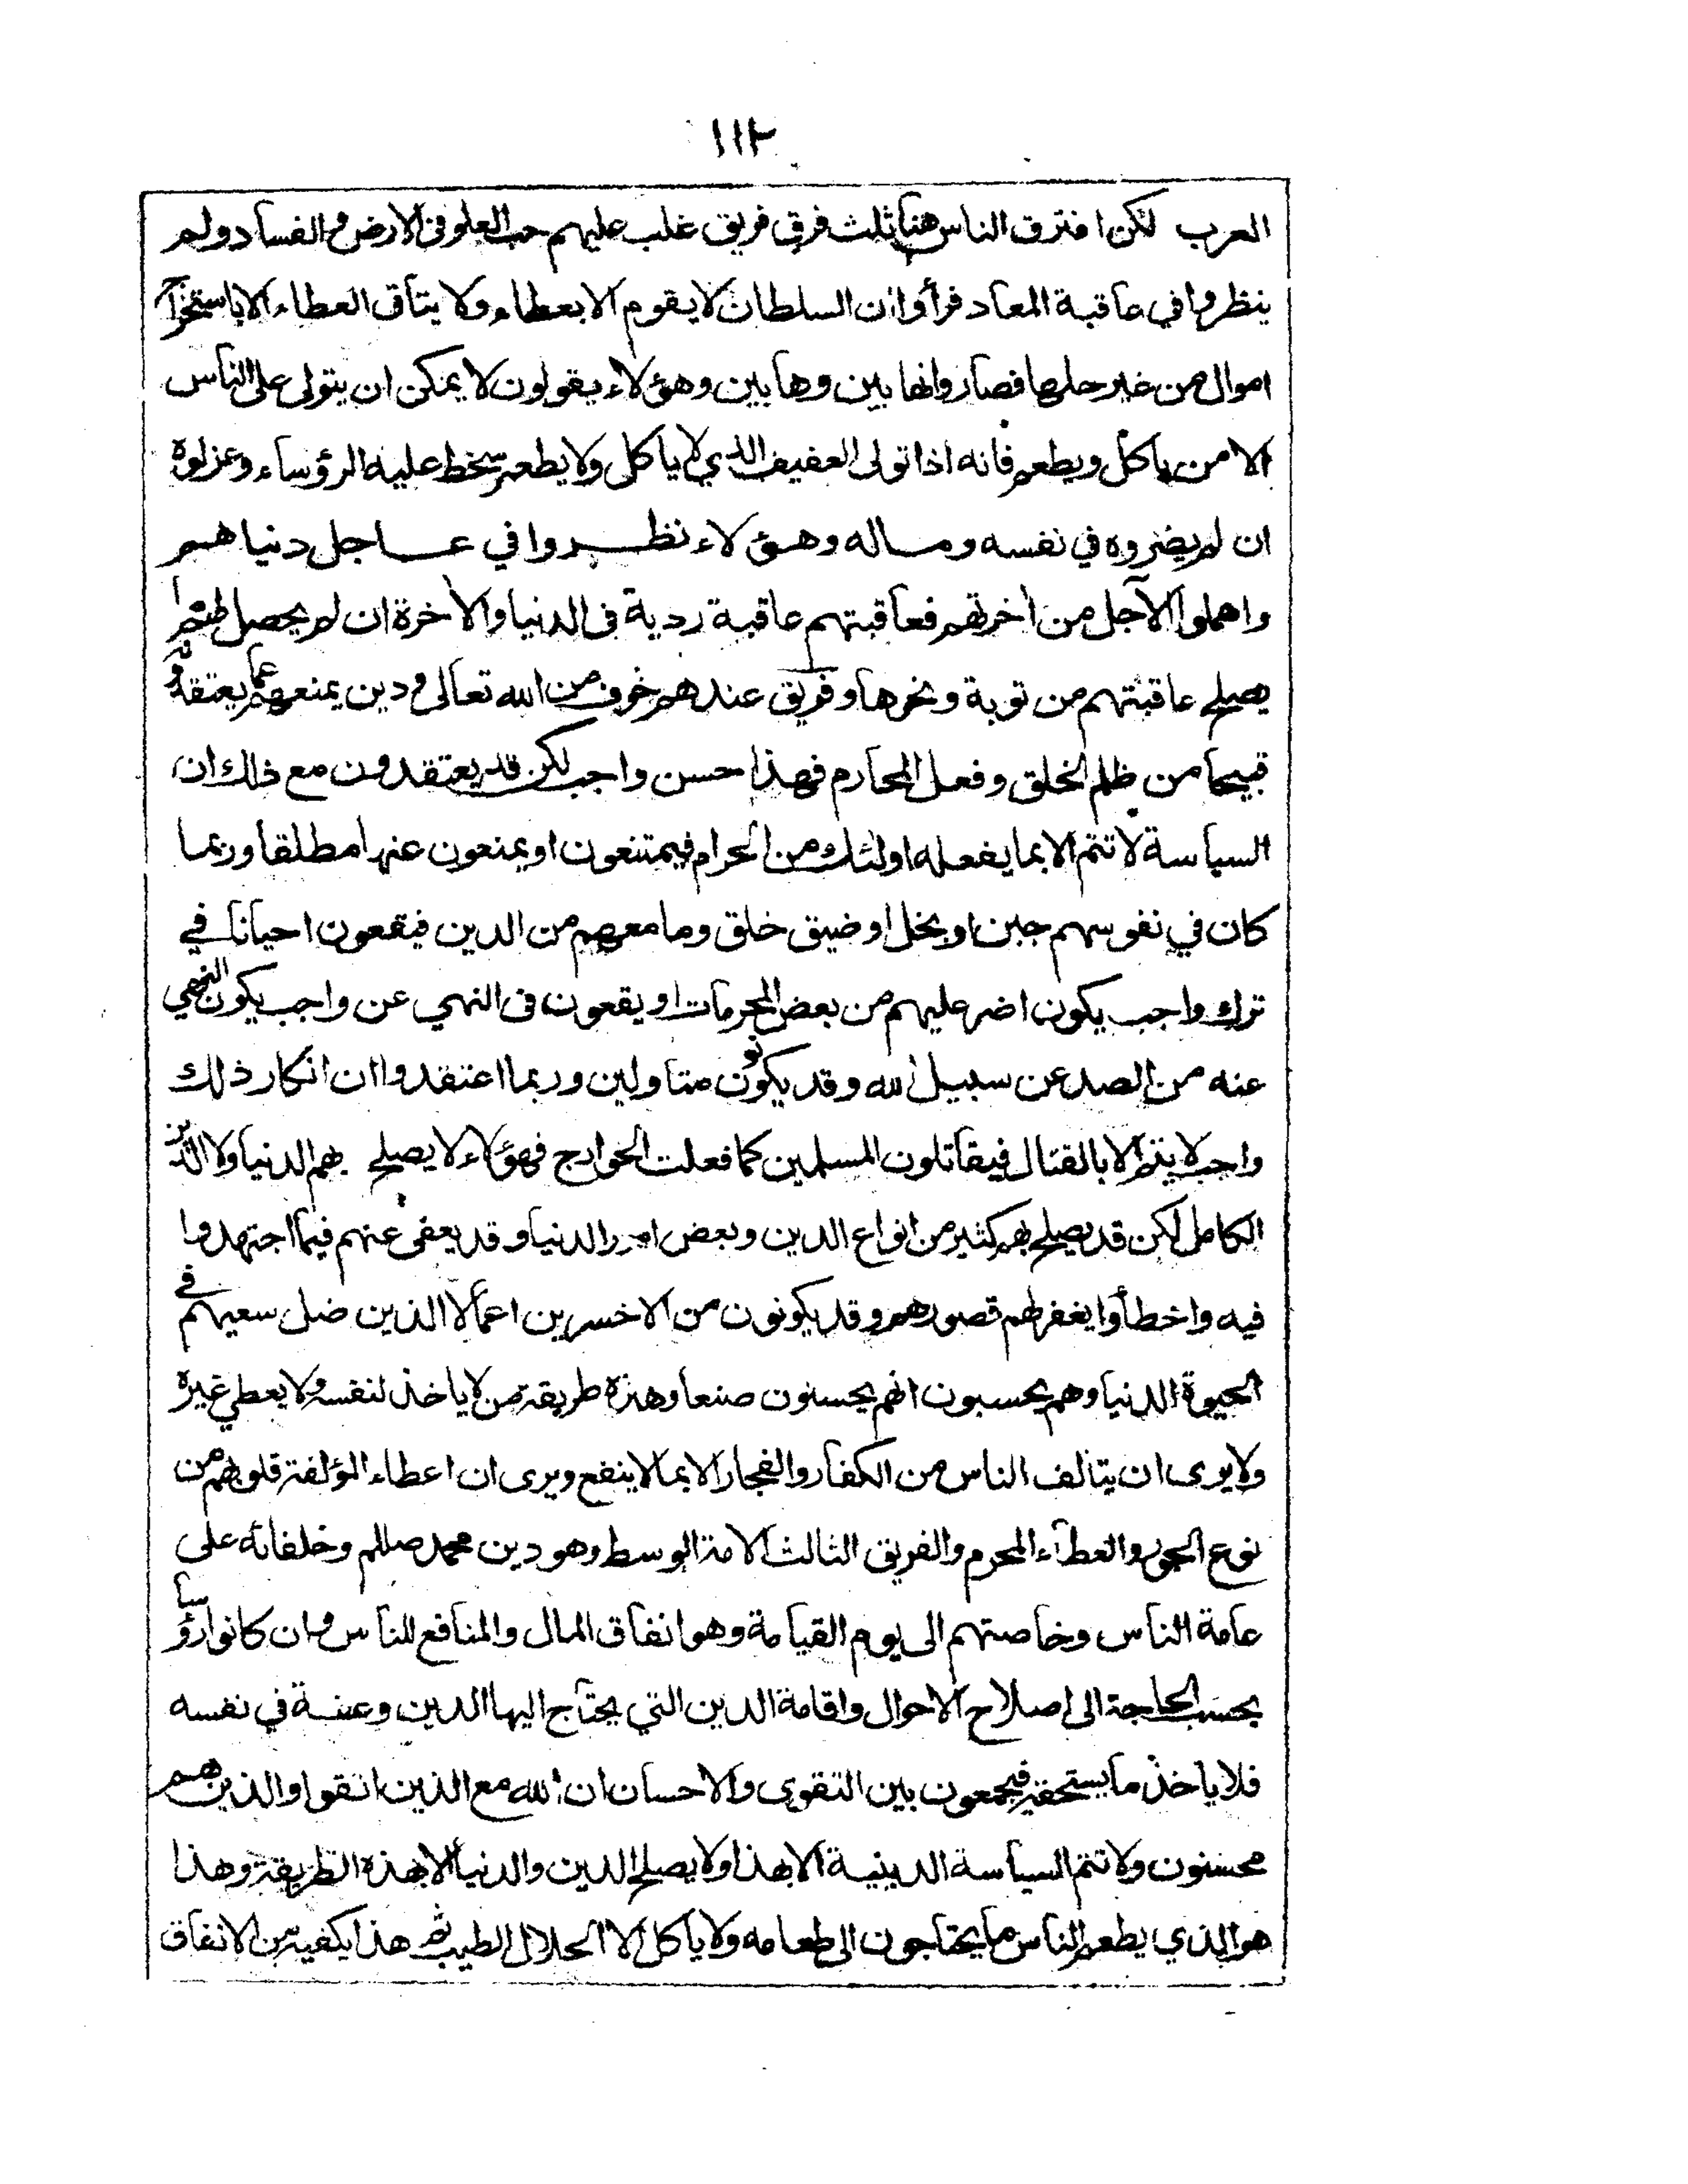 ١١٢
العرب لكن افترق الناس هنا ثلث فرق فريق غلب عليهم حب العلو في الارض والفساد ولم
ينظروا في عاقبة المعاد فرأوا ان السلطان لا يقوم الا بعطاء ولا يتأتى العطاء الا باستخراج
اموال من غير حلها فصاروا نهابين وهابين وهؤلاء يقولون لا يمكن ان يتولى على الناس
الا من يأكل ويطعم فانه اذا تولى العفيف الذي لا يأكل ولا يطعم سخط عليه الرؤساء وعزلوه
ان لم يضروه في نفسه وماله وهؤلاء نظروا في عاجل دنياهم
واهملوا الآجل من اخرتهم فعاقبتهم عاقبة ردية في الدنيا والاخرة ان لم يحصل لهم ما
يصلح عاقبتهم من توبة ونحوها وفريق عندهم خوف من الله تعالى ودين يمنعهم عما يعتقدونه
قبيحا من ظلم الخلق وفعل المحارم فهذا حسن واجب لكن قد يعتقدون مع ذلك ان
السياسة لا تتم الا بما يفعله اولئك من الحرام فيمتنعون او يمنعون عنها مطلقا وربما
كان في نفوسهم جبن او بخل او ضيق خلق وما معهم من الدين فيقعون احيانا في
ترك واجب يكون اضر عليهم من بعض المحرمات او يقعون في النهي عن واجب يكون النهي
عنه من الصد عن سبيل الله وقد يكونون متاولين وربما اعتقدوا ان انكار ذلك
واجب لا يتم الا بالقتال فيقاتلون المسلمين كما فعلت الخوارج فهؤلاء لا يصلح بهم الدنيا ولا الدين
الكامل لكن قد يصلح بهم كثير من انواع الدين وبعض امور الدنيا وقد يعفى عنهم فيما اجتهدوا
فيه واخطأوا يغفر لهم قصورهم وقد يكونون من الاخسرين اعمالا الذين ضل سعيهم في
الحيوة الدنيا وهم يحسبون انهم يحسنون صنعا وهذه طريقة من لا يأخذ لنفسه ولا يعطي غيره
ولا يرى ان يتألف الناس من الكفار والفجار الا بما لا ينفع ويرى ان اعطاء المؤلفة قلوبهم من
نوع الجور والعطاء المحرم والفريق الثالث الامة الوسط وهو دين محمد صللم وخلفائه على
عامة الناس وخاصتهم الى يوم القيامة وهو انفاق المال والمنافع للناس وان كانوا رؤسا
بحسب الحاجة الى اصلاح الاحوال واقامة الدين التي يحتاج اليها الدين وعفة في نفسه
فلا يأخذ ما يستحقه فيجمعون بين التقوى والاحسان ان الله مع الذين اتقوا والذين هم
محسنون ولا تتم السياسة الدينية الا بهذا ولا يصلح الدين والدنيا الا بهذه الطريقة وهذا
هو الذي يطعم الناس ما يحتاجون الى طعامه ولا يأكل الا الحلال الطيب ثم هذا يكفيه من الانفاق